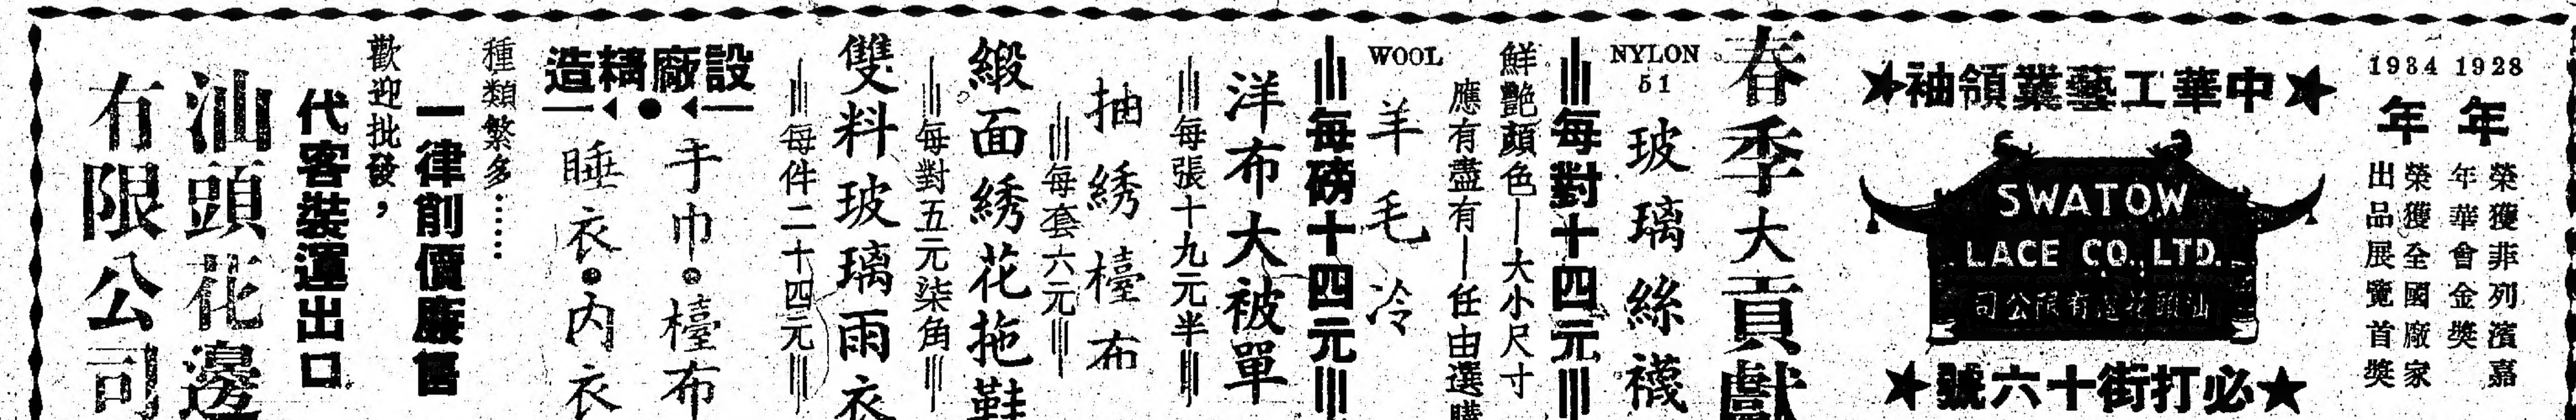 1928
年
榮獲非列濱嘉
年華會金獎
1934
年
榮獲全國廠家
出品展覽首獎
★中華工藝業領袖★
SWATOW
LACE CO., LTD.
汕頭花邊有限公司
★必打街十六號★
春季大貢獻
NYLON
51
玻璃絲襪
每對十四元
鮮艷顏色—大小尺寸
應有盡有—任由選購
WOOL
羊毛冷
每磅十四元
洋布大被單
每張十九元半
抽綉檯布
每套六元
緞面綉花拖鞋
每對五元柒角
雙料玻璃雨衣
每件二十四元
設廠精造
手巾•檯布
睡衣•內衣
種類繁多……
一律削價廉售
歡迎批發，
代客裝運出口
汕頭花邊
有限公司